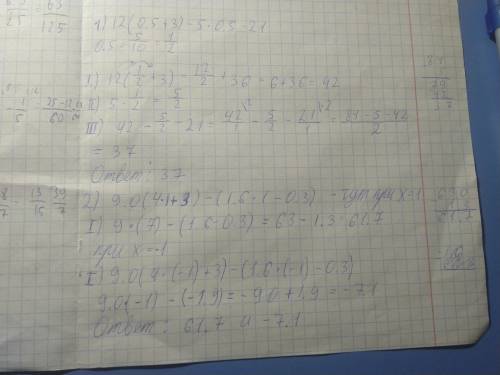 1) 12(0.5+3)-5·0.5-21
0.5=5/10=1/2
I) 12(1/2+3)=12/2+36=6+36=42
II) 5·1/2=5/2
III) 42-5/2-21=42/1-5/2-21/1=84-5-42/2
=37
Ответ: 37
2) 9.0(4·1+3)-(1.6·1-0.3) - тут при x=1
I) 9·(7)-(1.6-0.3)=63-1.3=61.7
при x=-1
I) 9.0(4·(-1)+3)-(1.6·(-1)-0.3)
9.0(-1)-(-1.9)=-9.0+1.9=-7.1
Ответ: 61.7 и -7.1